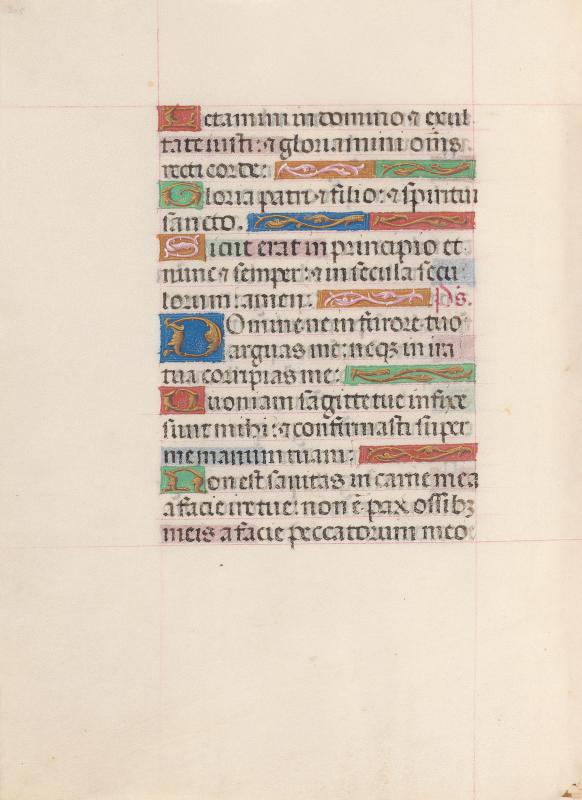 Letamini in domino ⁊ exul
tate iusti: ⁊ gloriamini om̄s
recti corde:
Gloria patri ⁊ filio: ⁊ spiritui
sancto.
Sicut erat in principio et
nunc ⁊ semper: ⁊ in secula secu
lorum: amen: Ps̄.
Domine ne in furore tuo
arguas me: neqꝫ in ira
tua corripias me:
Quoniam sagitte tue infixe
sunt mihi: ⁊ confirmasti super
me manum tuam:
Non est sanitas in carne mea
a facie ire tue: non ē pax ossibꝫ
meis a facie peccatorum meo